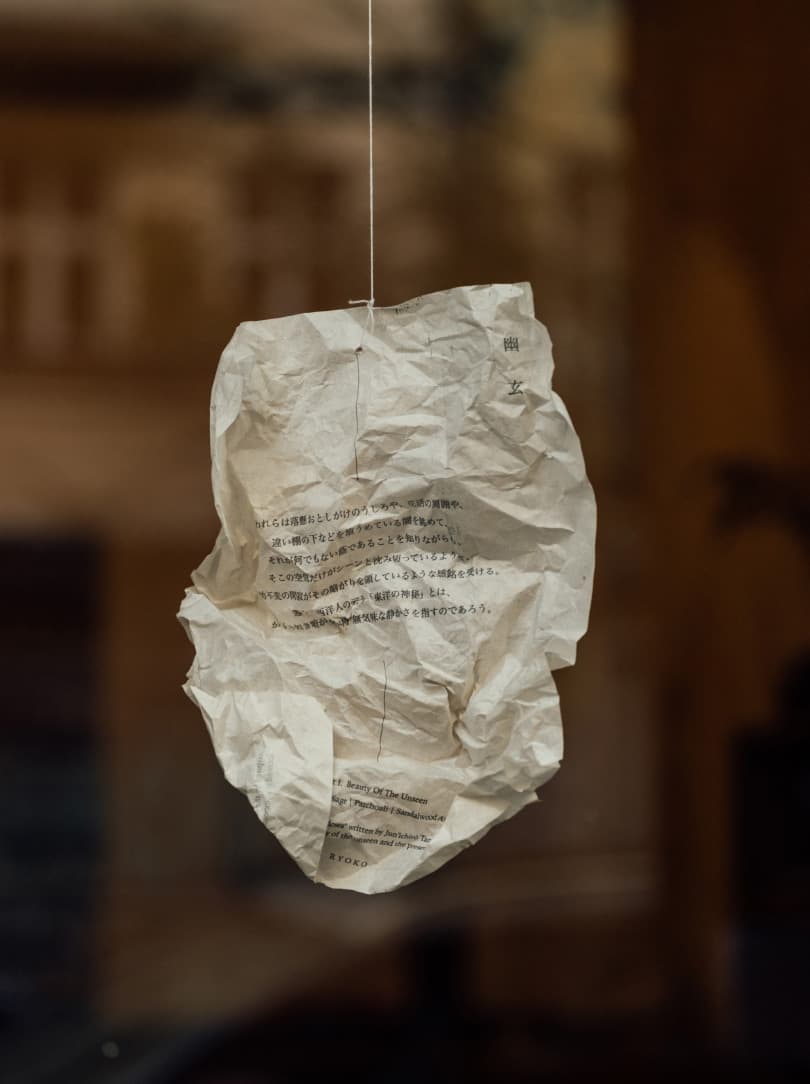 幽
玄
われらは落懸おとしがけのうしろや、花活の周囲や、
違い棚の下などを填うめている闇を眺めて、
それが何でもない蔭であることを知りながらも、
そこの空気だけがシーンと沈み切っているような、
不変の閑寂がその暗がりを領しているような感銘を受ける。
西洋人の 「東洋の神秘」とは、
無気味な静かさを指すのであろう。
Beauty Of The Unseen
Sage | Patchouli | Sandalwood
written by Jun'ichirō
of the unseen and the
RYOKO